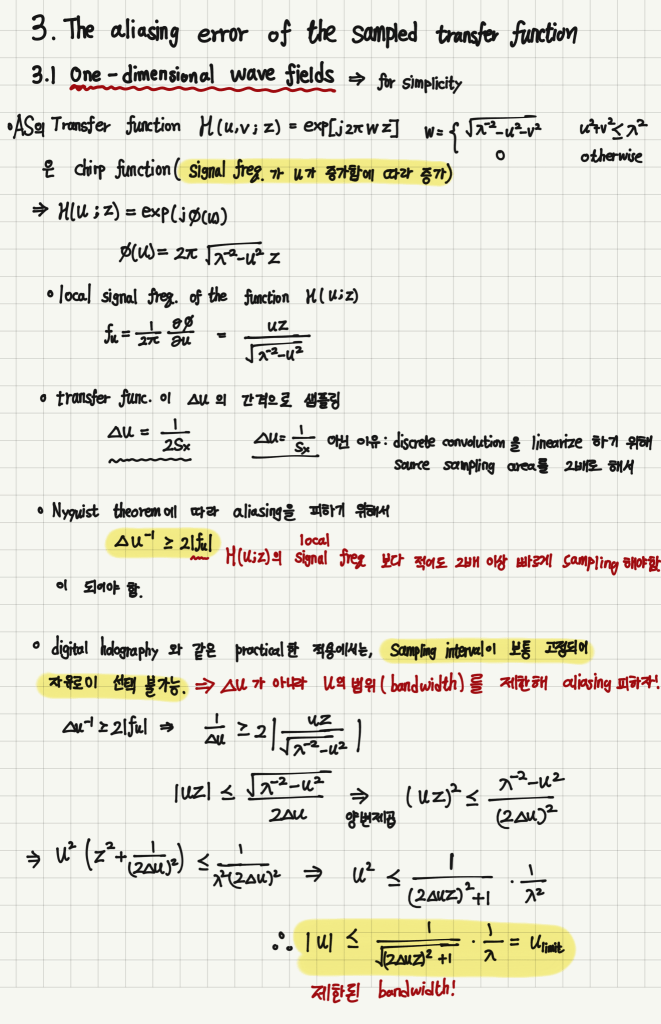 3. The aliasing error of the sampled transfer function
3.1 One-dimensional wave fields ⇒ for simplicity
• AS의 Transfer function H(u,v;z) = exp[j2πwz] w = { √(λ⁻²-u²-v²) u²+v² ≤ λ²
0 otherwise
은 chirp function (Signal freq.가 u가 증가함에 따라 증가)
⇒ H(u;z) = exp(jφ(u))
φ(u) = 2π √(λ⁻²-u²) z
• local signal freq. of the function H(u;z)
fu = 1/2π ∂φ/∂u = uz/√(λ⁻²-u²)
• transfer func.이 Δu의 간격으로 샘플링
Δu = 1/2Sx Δu = 1/Sx 아닌 이유: discrete convolution을 linearize 하기 위해
source sampling area를 2배로 해서
• Nyquist theorem에 따라 aliasing을 피하기 위해서
Δu⁻¹ ≥ 2|fu| H(u;z)의 local signal freq 보다 적어도 2배 이상 빠르게 sampling 해야함
이 되어야 함.
• digital holography 와 같은 practical한 적용에서는, sampling interval이 보통 고정되어
자유로이 선택 불가능. ⇒ Δu가 아니라 u의 범위(bandwidth)를 제한해 aliasing 피하자!
Δu⁻¹ ≥ 2|fu| ⇒ 1/Δu ≥ 2|uz/√(λ⁻²-u²)|
|uz| ≤ √(λ⁻²-u²)/2Δu ⇒ 양변제곱 (uz)² ≤ (λ⁻²-u²)/(2Δu)²
⇒ u² (z² + 1/(2Δu)²) ≤ 1/λ²(2Δu)² ⇒ u² ≤ 1/((2Δuz)²+1) · 1/λ²
∴ |u| ≤ 1/√((2Δuz)²+1) · 1/λ = ulimit
제한된 bandwidth!